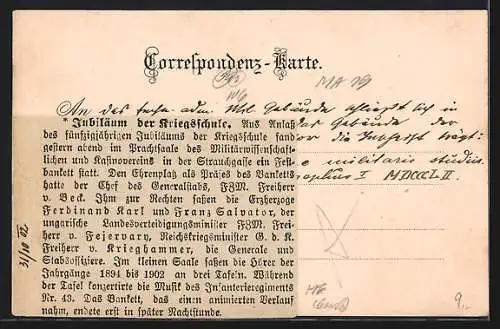 Correspondenz-Karte.
MA 29
* Jubiläum der Kriegsschule. Aus Anlaß
des fünfzigjährigen Jubiläums der Kriegsschule fand
gestern abend im Prachtsaale des Militärwissenschaft-
lichen und Kasinovereins in der Strauchgasse ein Fest-
bankett statt. Den Ehrenplatz als Präses des Banketts
hatte der Chef des Generalstabs, FZM. Freiherr
v. Beck. Ihm zur Rechten saßen die Erzherzoge
Ferdinand Karl und Franz Salvator, der
ungarische Landesverteidigungsminister FZM. Frei-
herr v. Fejervary, Reichskriegsminister G. d. K.
Freiherr v. Krieghammer, die Generale und
Stabsoffiziere. Im kleinen Saale saßen die Hörer der
Jahrgänge 1894 bis 1902 an drei Tafeln. Während
der Tafel konzertirte die Musik des Infanterieregiments
Nr. 43. Das Bankett, das einen animierten Verlauf
nahm, endete erst in später Nachtstunde.
An des Mil. Gebäude schließt sich in
das Gebäude der
vor die Inschrift trägt:
e militaris studiis
I MDCCCLII
9.-